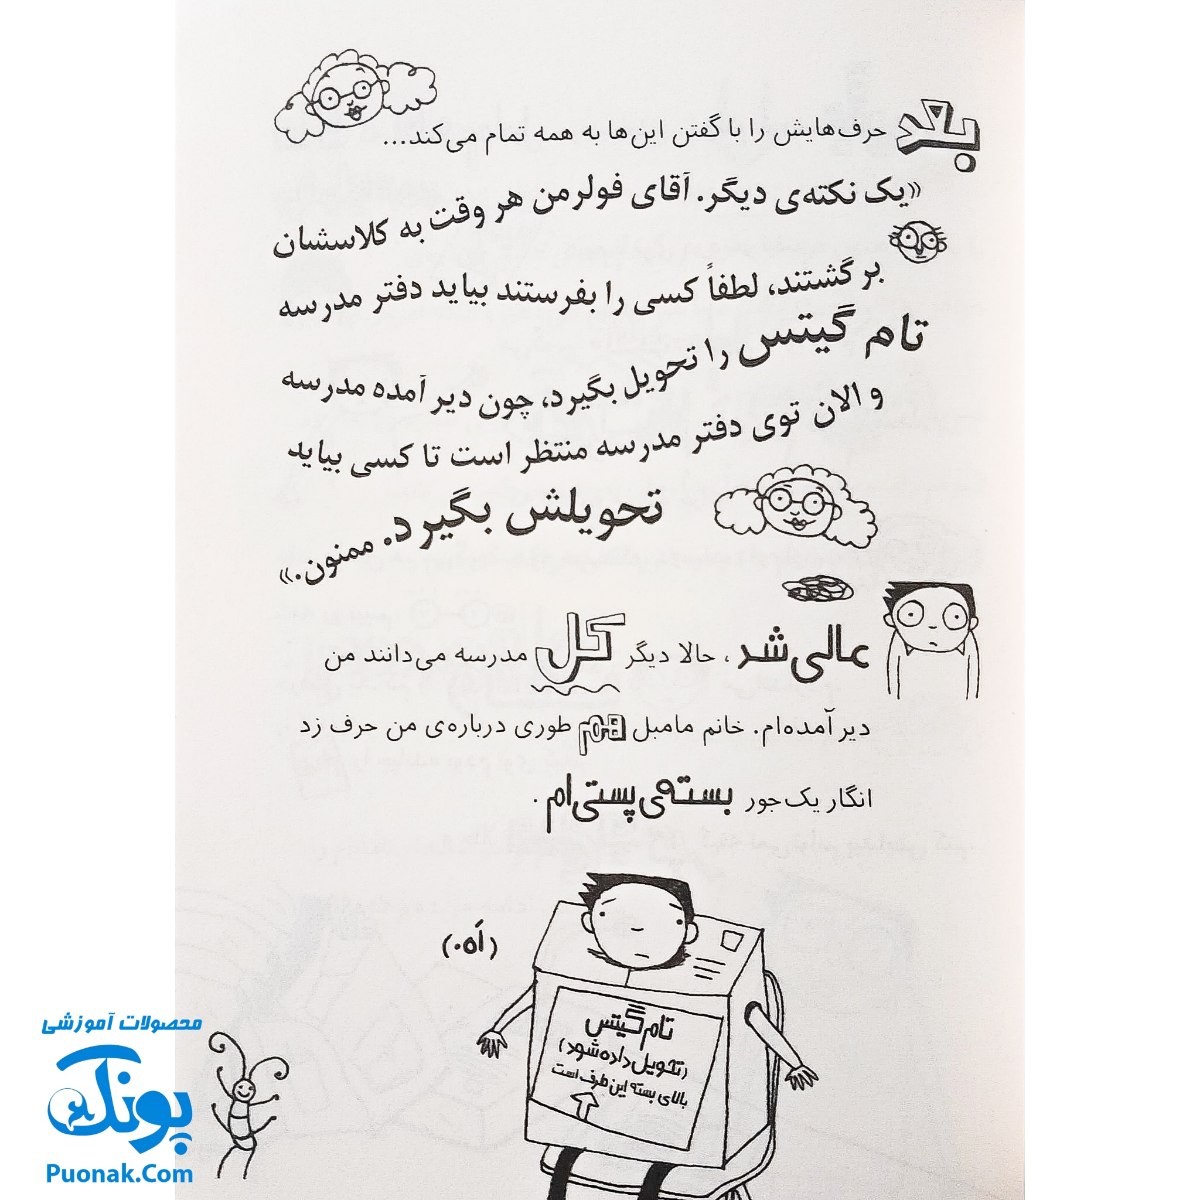 بعد حرف‌هایش را با گفتن این‌ها به همه تمام می‌کند...
«یک نکته‌ی دیگر. آقای فولرمن هر وقت به کلاسشان
برگشتند، لطفاً کسی را بفرستند بیاید دفتر مدرسه
تام گیتس را تحویل بگیرد، چون دیر آمده مدرسه
و الان توی دفتر مدرسه منتظر است تا کسی بیاید
تحویلش بگیرد. ممنون.»
عالی شد، حالا دیگر کل مدرسه می‌دانند من
دیر آمده‌ام. خانم مامبل هم طوری درباره‌ی من حرف زد
انگار یک‌جور بسته‌ی پستی‌ام.
(اَه.)
تام گیتس
(تحویل داده شود)
بالای بسته این طرف است
محصولات آموزشی
پونک
Puonak.Com